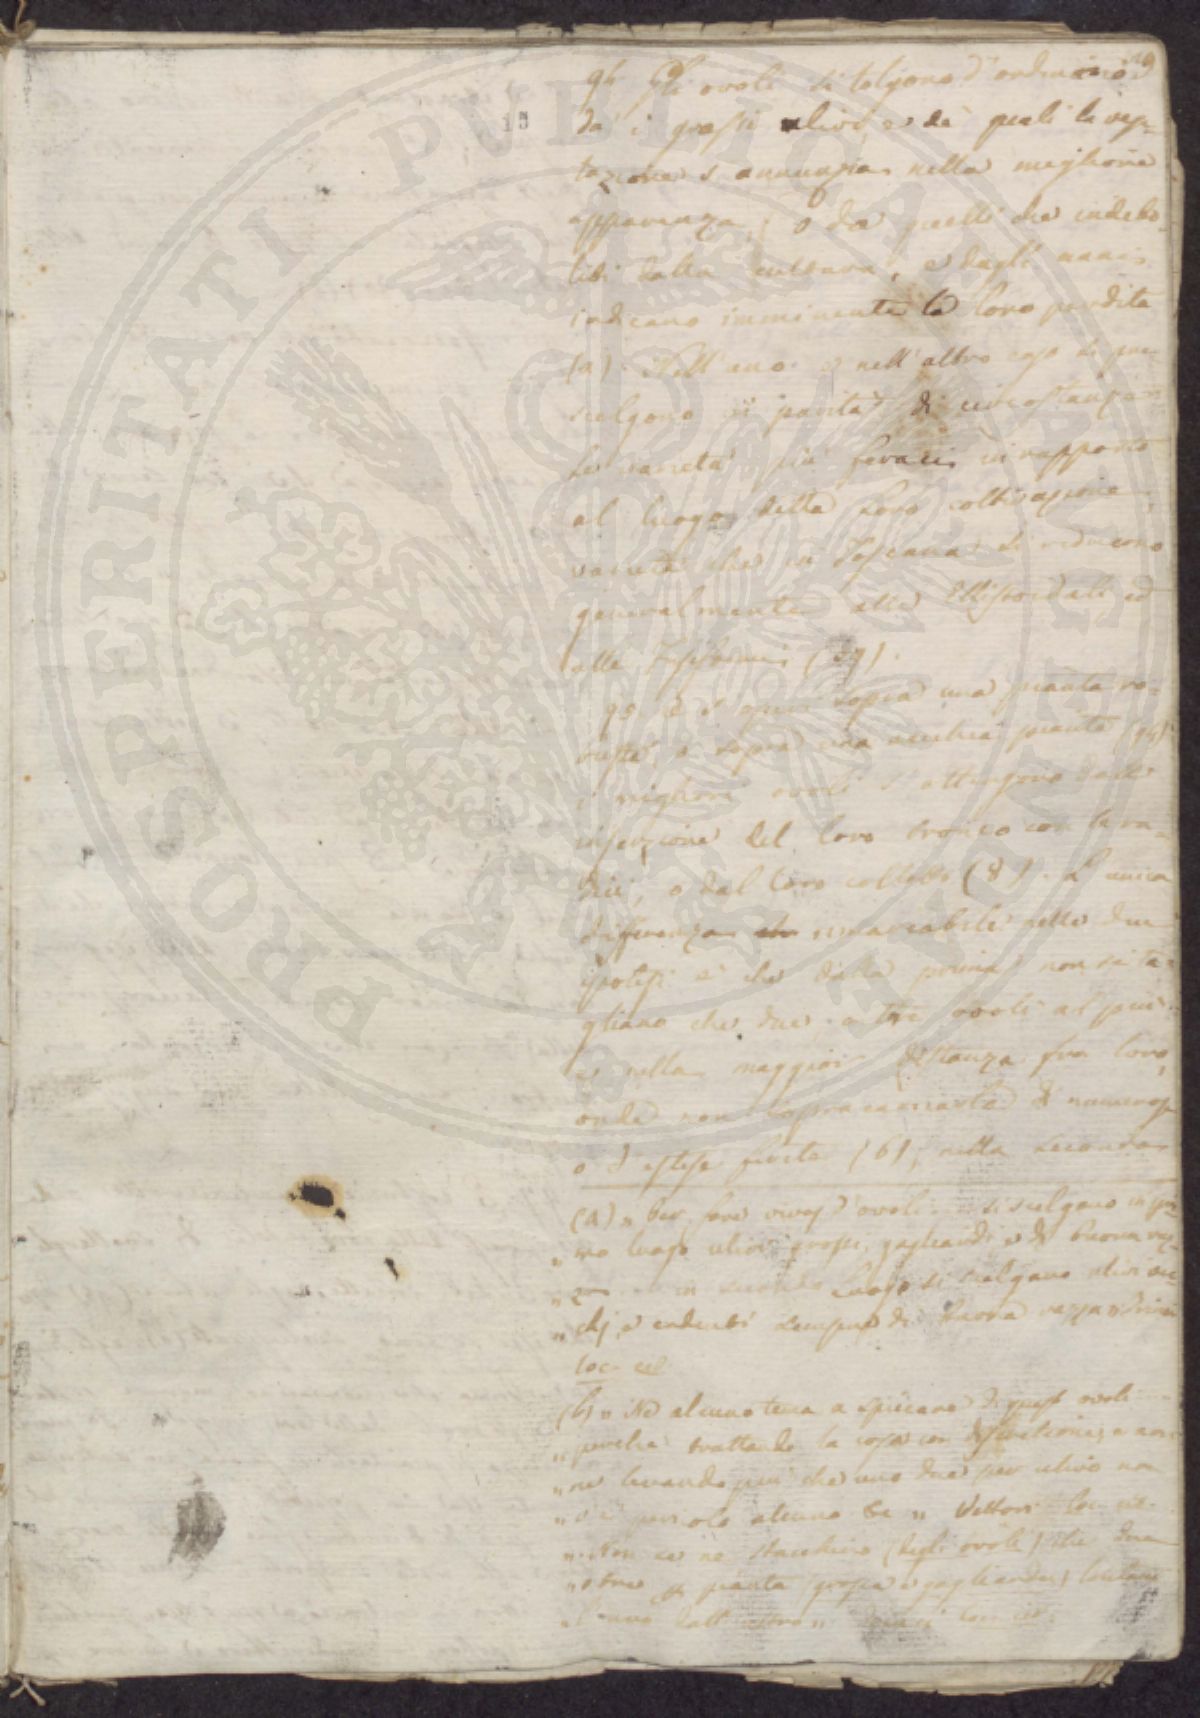 19
15
94 Gli ovoli si tolgono d'ordinario
da' i grossi ulivi e de' quali la vege-
tazione s'annunzia nella migliore
apparenza, o da quelli che indebo-
liti dalla cultura, e dagli anni
indicano imminente la loro perdita
(a). Nell'uno e nell'altro caso si pre-
scelgono a parità di circostanze
le varietà più feraci in rapporto
al luogo della loro coltivazione,
varietà che in Toscana si riducono
generalmente alle Ellissoidali ed
alle Fusiformi (29).
95. e s'operi sopra una pianta ro-
busta, o sopra una vecchia pianta (94)
i migliori ovoli s'ottengono dall'
inserzione del loro tronco con le ra-
dici, o dal loro colletto (8). L'unica
differenza rimarcabile nelle due
ipotesi è che dalla prima non si ta-
gliano che due, o tre ovoli al più
e nella maggior distanza fra loro,
onde non sopracaricarla di numerose
o d'estese ferite (b); nella seconda
(a) „ Per fare vivaj d'ovoli si scelgano in pri-
„ mo luogo ulivi grossi, gagliardi e di buona raz-
„ za in secondo luogo si scelgano ulivi vec-
„ chj, e cadenti sempre di buona razza „
loc. cit.
(b) „ Nè alcuno tema a spiccare di questi ovoli
„ perchè trattando la cosa con discretione, e non
„ ne levando più che uno due per ulivo non
„ v'è pericolo alcuno &c „ Vettori loc. cit.
„ Non se ne stacchino (degli ovoli) che due
„ o tre pianta (grossa e gagliarda) lontani
„ l'uno dall'altro „ loc. cit.